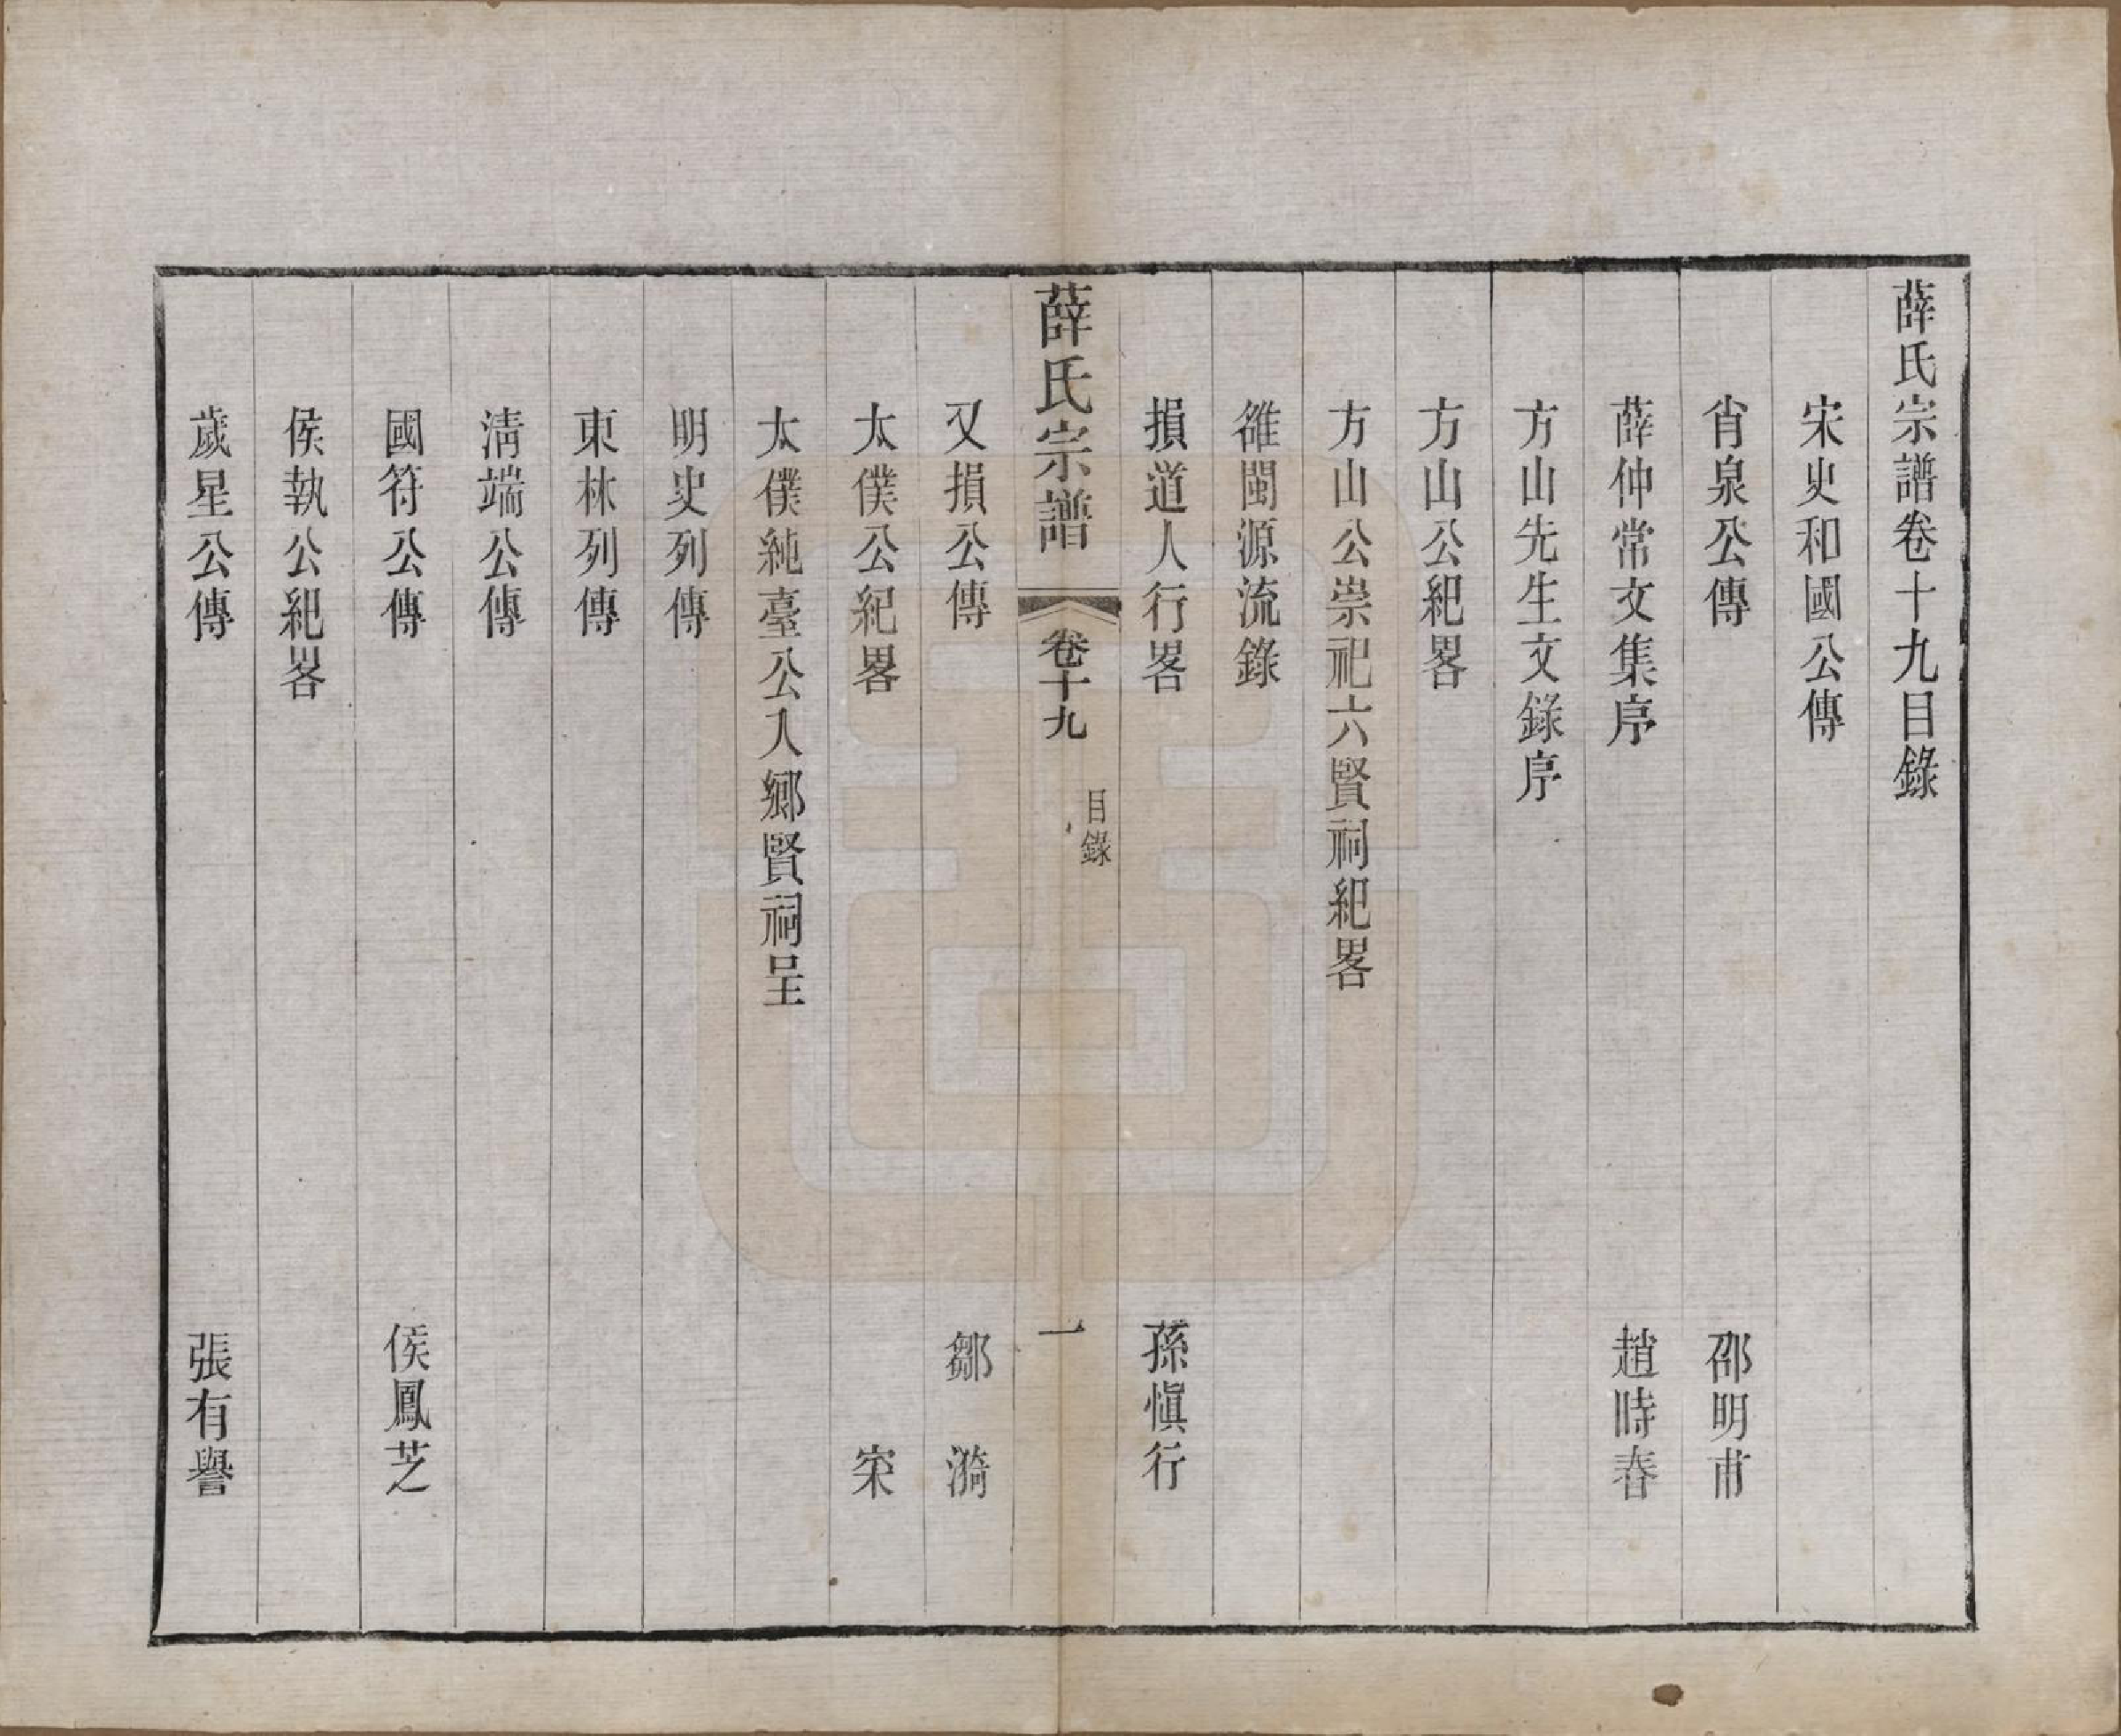 薛氏宗譜卷十九目錄
宋史和國公傳
肖泉公傳　邵明甫
薛仲常文集序　趙時春
方山先生文錄序
方山公紀畧
方山公崇祀六賢祠紀畧
雒閩源流錄
損道人行畧　孫愼行
薛氏宗譜　卷十九　目錄　一
又損公傳　鄒漪
太僕公紀畧　宋
太僕純臺公入鄉賢祠呈
明史列傳
東林列傳
淸端公傳
國符公傳　侯鳳芝
侯執公紀畧
歲星公傳　張有譽